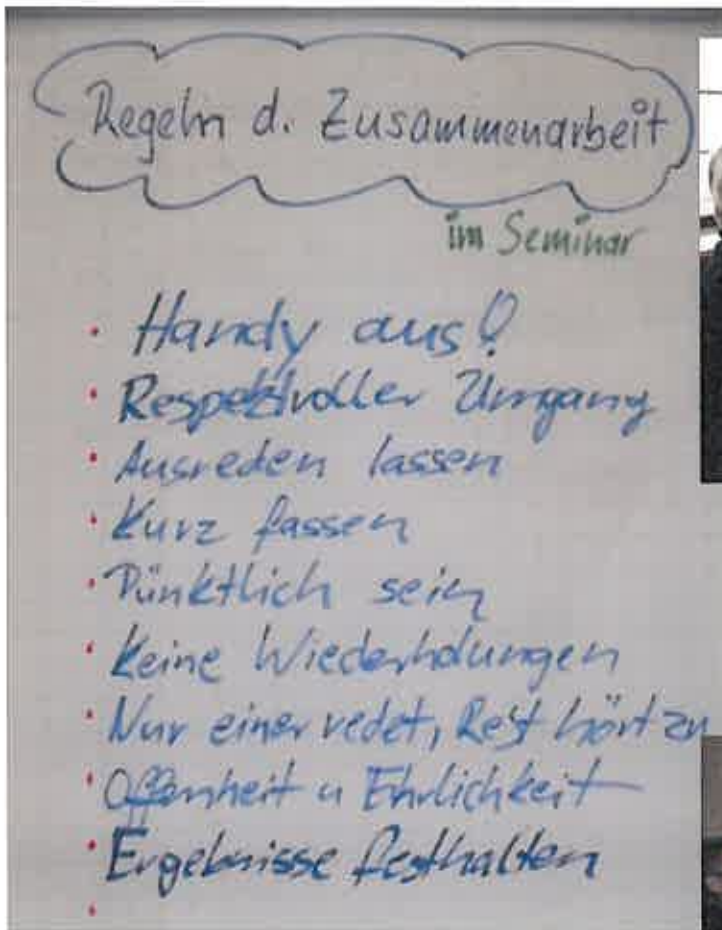 Regeln d. Zusammenarbeit
im Seminar
• Handy aus!
• Respektvoller Umgang
• Ausreden lassen
• Kurz fassen
• Pünktlich sein
• Keine Wiederholungen
• Nur einer redet, Rest hört zu
• Offenheit u Ehrlichkeit
• Ergebnisse festhalten
•